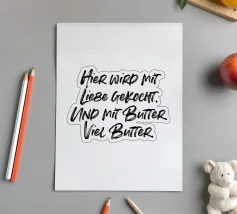 Hier wird mit
Liebe gekocht.
Und mit Butter.
Viel Butter.